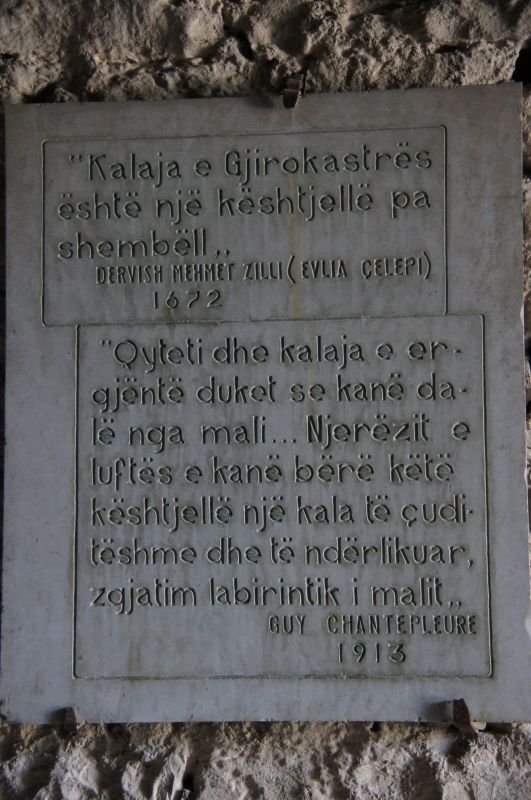 "Kalaja e Gjirokastrës
është një kështjellë pa
shembëll„
DERVISH MEHMET ZILLI (EVLIA ÇELEPI)
1672
"Qyteti dhe kalaja e er-
gjëntë duket se kanë da-
lë nga mali... Njerëzit e
luftës e kanë bërë këtë
kështjellë një kala të çudi-
tëshme dhe të ndërlikuar,
zgjatim labirintik i malit„
GUY CHANTEPLEURE
1913